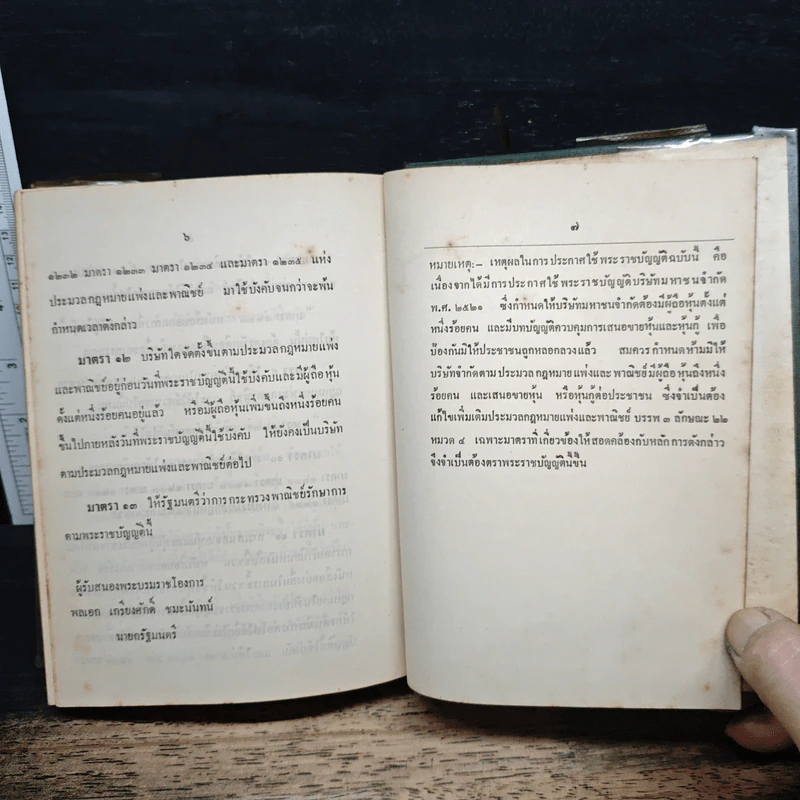 ๖
๑๒๓๒ มาตรา ๑๒๓๓ มาตรา ๑๒๓๔ และมาตรา ๑๒๓๕ แห่ง
ประมวลกฎหมายแพ่งและพาณิชย์ มาใช้บังคับจนกว่าจะพ้น
กำหนดเวลาดังกล่าว
มาตรา ๑๒ บริษัทใดจัดตั้งขึ้นตามประมวลกฎหมายแพ่ง
และพาณิชย์อยู่ก่อนวันที่พระราชบัญญัตินี้ใช้บังคับและมีผู้ถือหุ้น
ตั้งแต่หนึ่งร้อยคนอยู่แล้ว หรือมีผู้ถือหุ้นเพิ่มขึ้นถึงหนึ่งร้อยคน
ขึ้นไปภายหลังวันที่พระราชบัญญัตินี้ใช้บังคับ ให้ยังคงเป็นบริษัท
ตามประมวลกฎหมายแพ่งและพาณิชย์ต่อไป
มาตรา ๑๓ ให้รัฐมนตรีว่าการกระทรวงพาณิชย์รักษาการ
ตามพระราชบัญญัตินี้
ผู้รับสนองพระบรมราชโองการ
พลเอก เกรียงศักดิ์ ชมะนันทน์
นายกรัฐมนตรี
๗
หมายเหตุ:– เหตุผลในการประกาศใช้พระราชบัญญัติฉบับนี้ คือ
เนื่องจากได้มีการประกาศใช้พระราชบัญญัติบริษัทมหาชนจำกัด
พ.ศ. ๒๕๒๑ ซึ่งกำหนดให้บริษัทมหาชนจำกัดต้องมีผู้ถือหุ้นตั้งแต่
หนึ่งร้อยคน และมีบทบัญญัติควบคุมการเสนอขายหุ้นและหุ้นกู้ เพื่อ
ป้องกันมิให้ประชาชนถูกหลอกลวงแล้ว สมควรกำหนดห้ามมิให้
บริษัทจำกัดตามประมวลกฎหมายแพ่งและพาณิชย์มีผู้ถือหุ้นถึงหนึ่ง
ร้อยคน และเสนอขายหุ้น หรือหุ้นกู้ต่อประชาชน ซึ่งจำเป็นต้อง
แก้ไขเพิ่มเติมประมวลกฎหมายแพ่งและพาณิชย์ บรรพ ๓ ลักษณะ ๒๒
หมวด ๔ เฉพาะมาตราที่เกี่ยวข้องให้สอดคล้องกับหลักการดังกล่าว
จึงจำเป็นต้องตราพระราชบัญญัตินี้ขึ้น